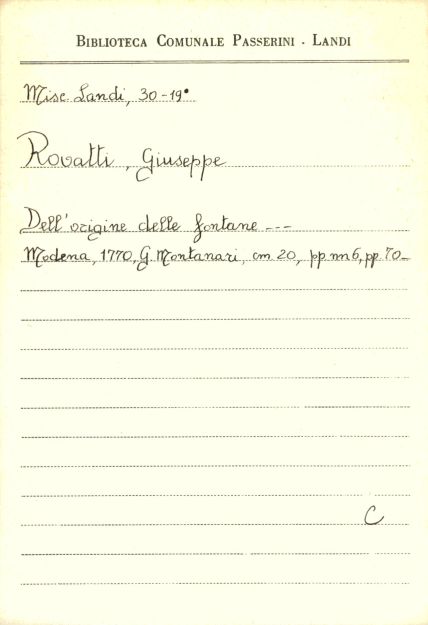 BIBLIOTECA COMUNALE PASSERINI - LANDI
Misc. Landi, 30-19°
Rovatti, Giuseppe
Dell'origine delle fontane ---
Modena, 1770, G. Montanari, cm. 20, pp. nn 6, pp. 70_
C